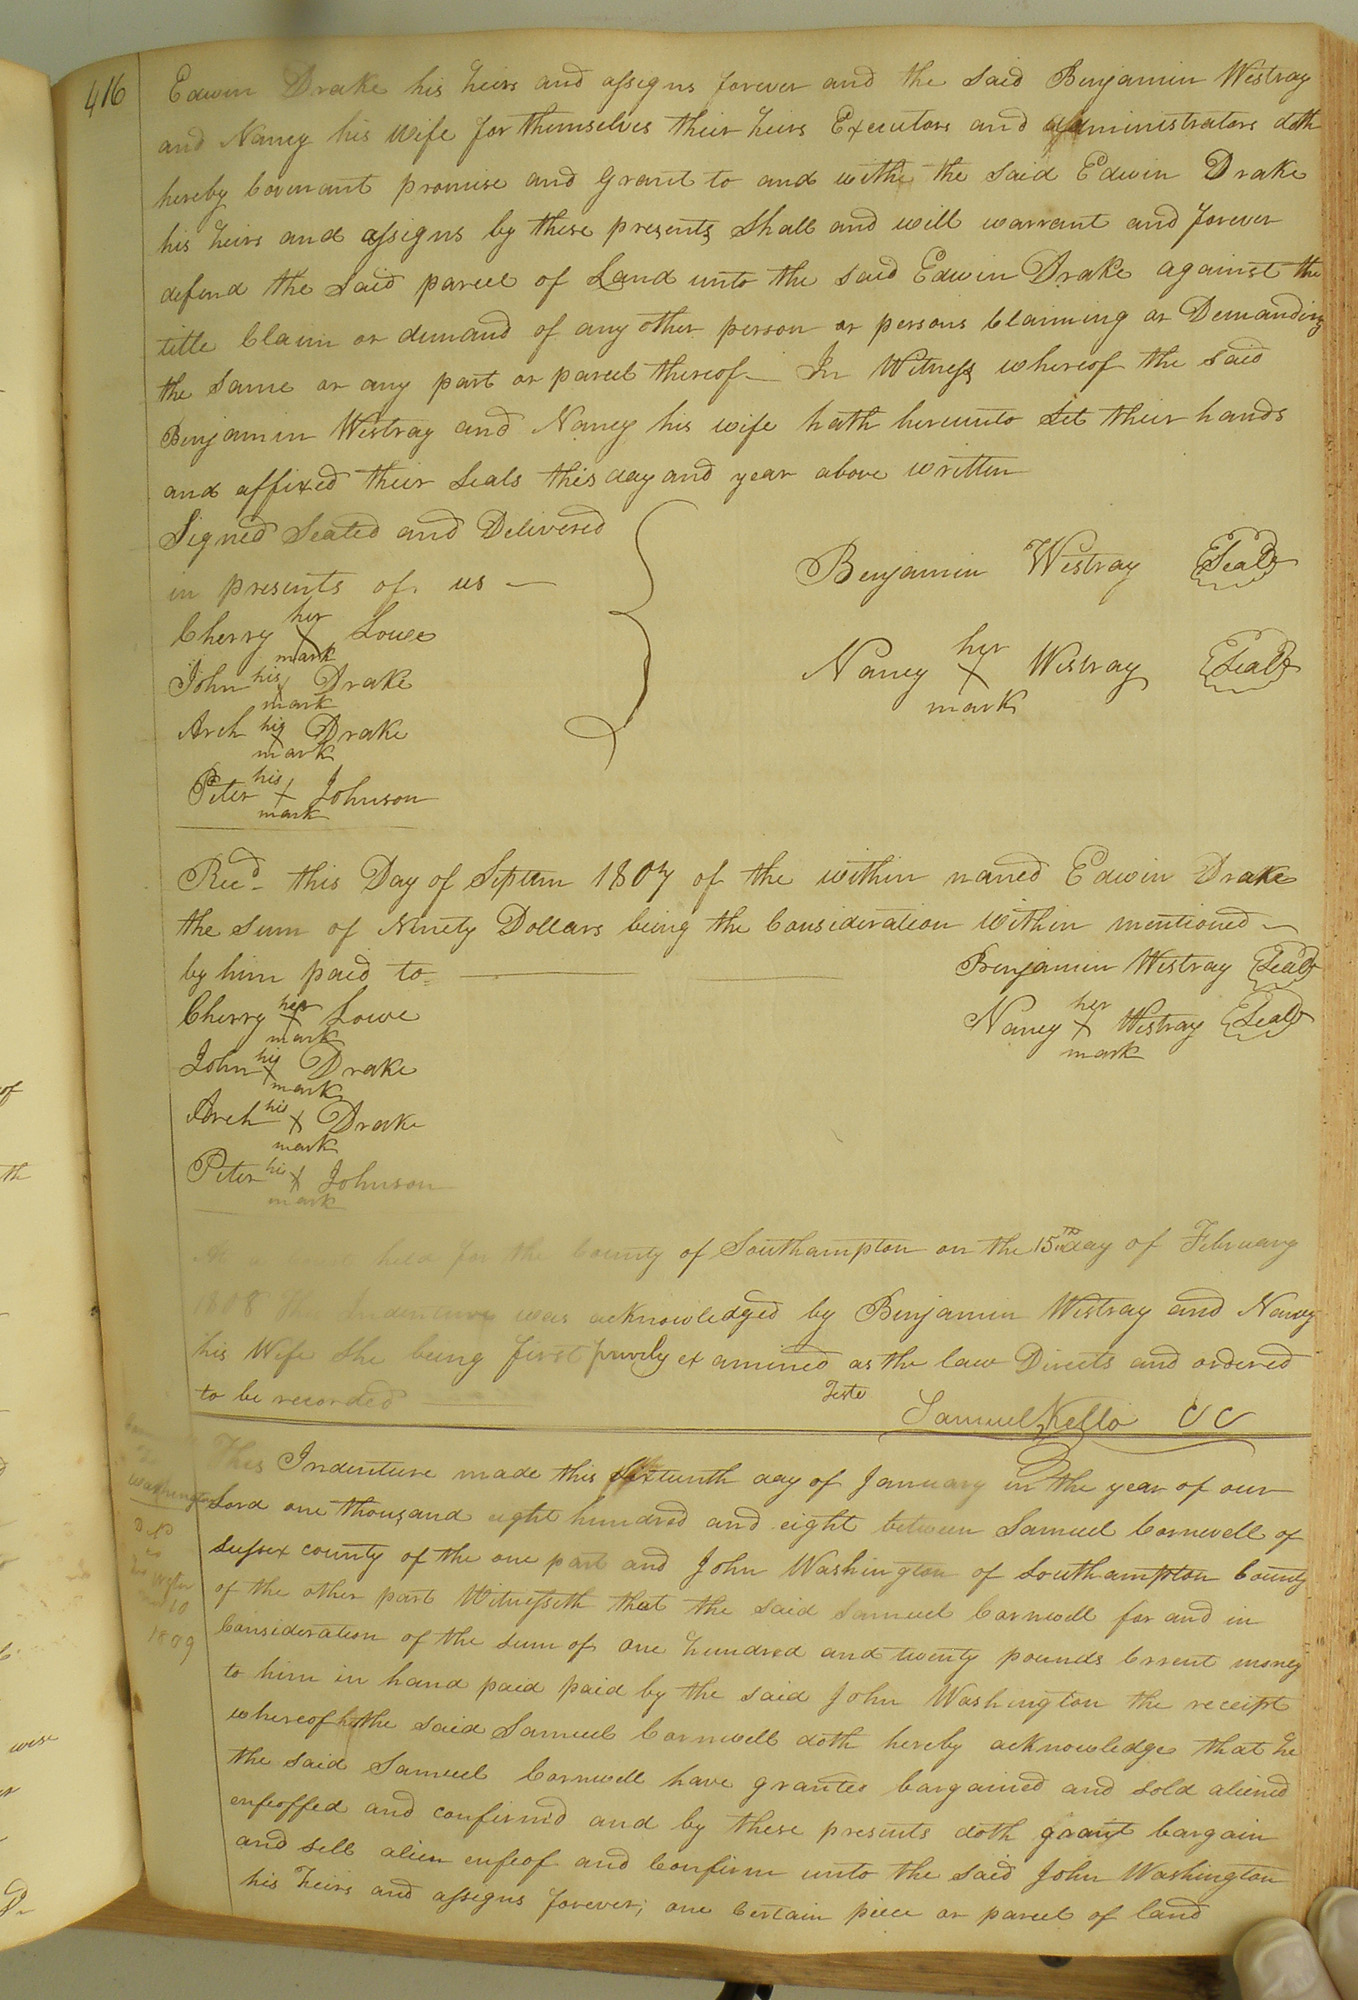 416
Edwin Drake his heirs and assigns forever and the said Benjamin Westray
and Nancy his wife for themselves their heirs Executors and administrators doth
hereby Covenant promise and grant to and with the said Edwin Drake
his heirs and assigns by these presents shall and will warrant and forever
defend the said parcel of Land unto the said Edwin Drake against the
title Claim or demand of any other person or persons Claiming or Demanding
the same or any part or parcel thereof — In Witness whereof the said
Benjamin Westray and Nancy his wife hath hereunto set their hands
and affixed their seals this day and year above written
Signed Sealed and Delivered
in presents of us —
Cherry her X mark Lowe
John his X mark Drake
Arch his X mark Drake
Peter his X mark Johnson
Benjamin Westray Seal
Nancy her X mark Westray Seal
Recd. this Day of Septem 1807 of the within named Edwin Drake
the sum of Ninety Dollars being the Consideration within mentioned —
by him paid to =
Benjamin Westray Seal
Nancy her X mark Westray Seal
Cherry her X mark Lowe
John his X mark Drake
Arch his X mark Drake
Peter his X mark Johnson
At a held for the County of Southampton on the 15th day of February
1808 this Indenture was acknowledged by Benjamin Westray and Nancy
his Wife she being first privily examined as the law Directs and ordered
to be recorded
Teste
Samuel Kello CC
This Indenture made this sixteenth day of January in the year of our
Lord one thousand eight hundred and eight between Samuel Cornwell of
Sussex county of the one part and John Washington of Southampton County
of the other part Witnesseth that the said Samuel Cornwell for and in
Consideration of the sum of one hundred and twenty pounds Crrent money
to him in hand paid paid by the said John Washington the receipt
whereof the said Samuel Cornwell doth hereby acknowledge that he
the said Samuel Cornwell have granted bargained and sold aliened
enfeoffed and confirmd and by these presents doth graant bargain
and sell alien enfeof and Confirm unto the said John Washington
his heirs and assigns forever; one Certain piece or parcel of land
Washington
10
1809
wise